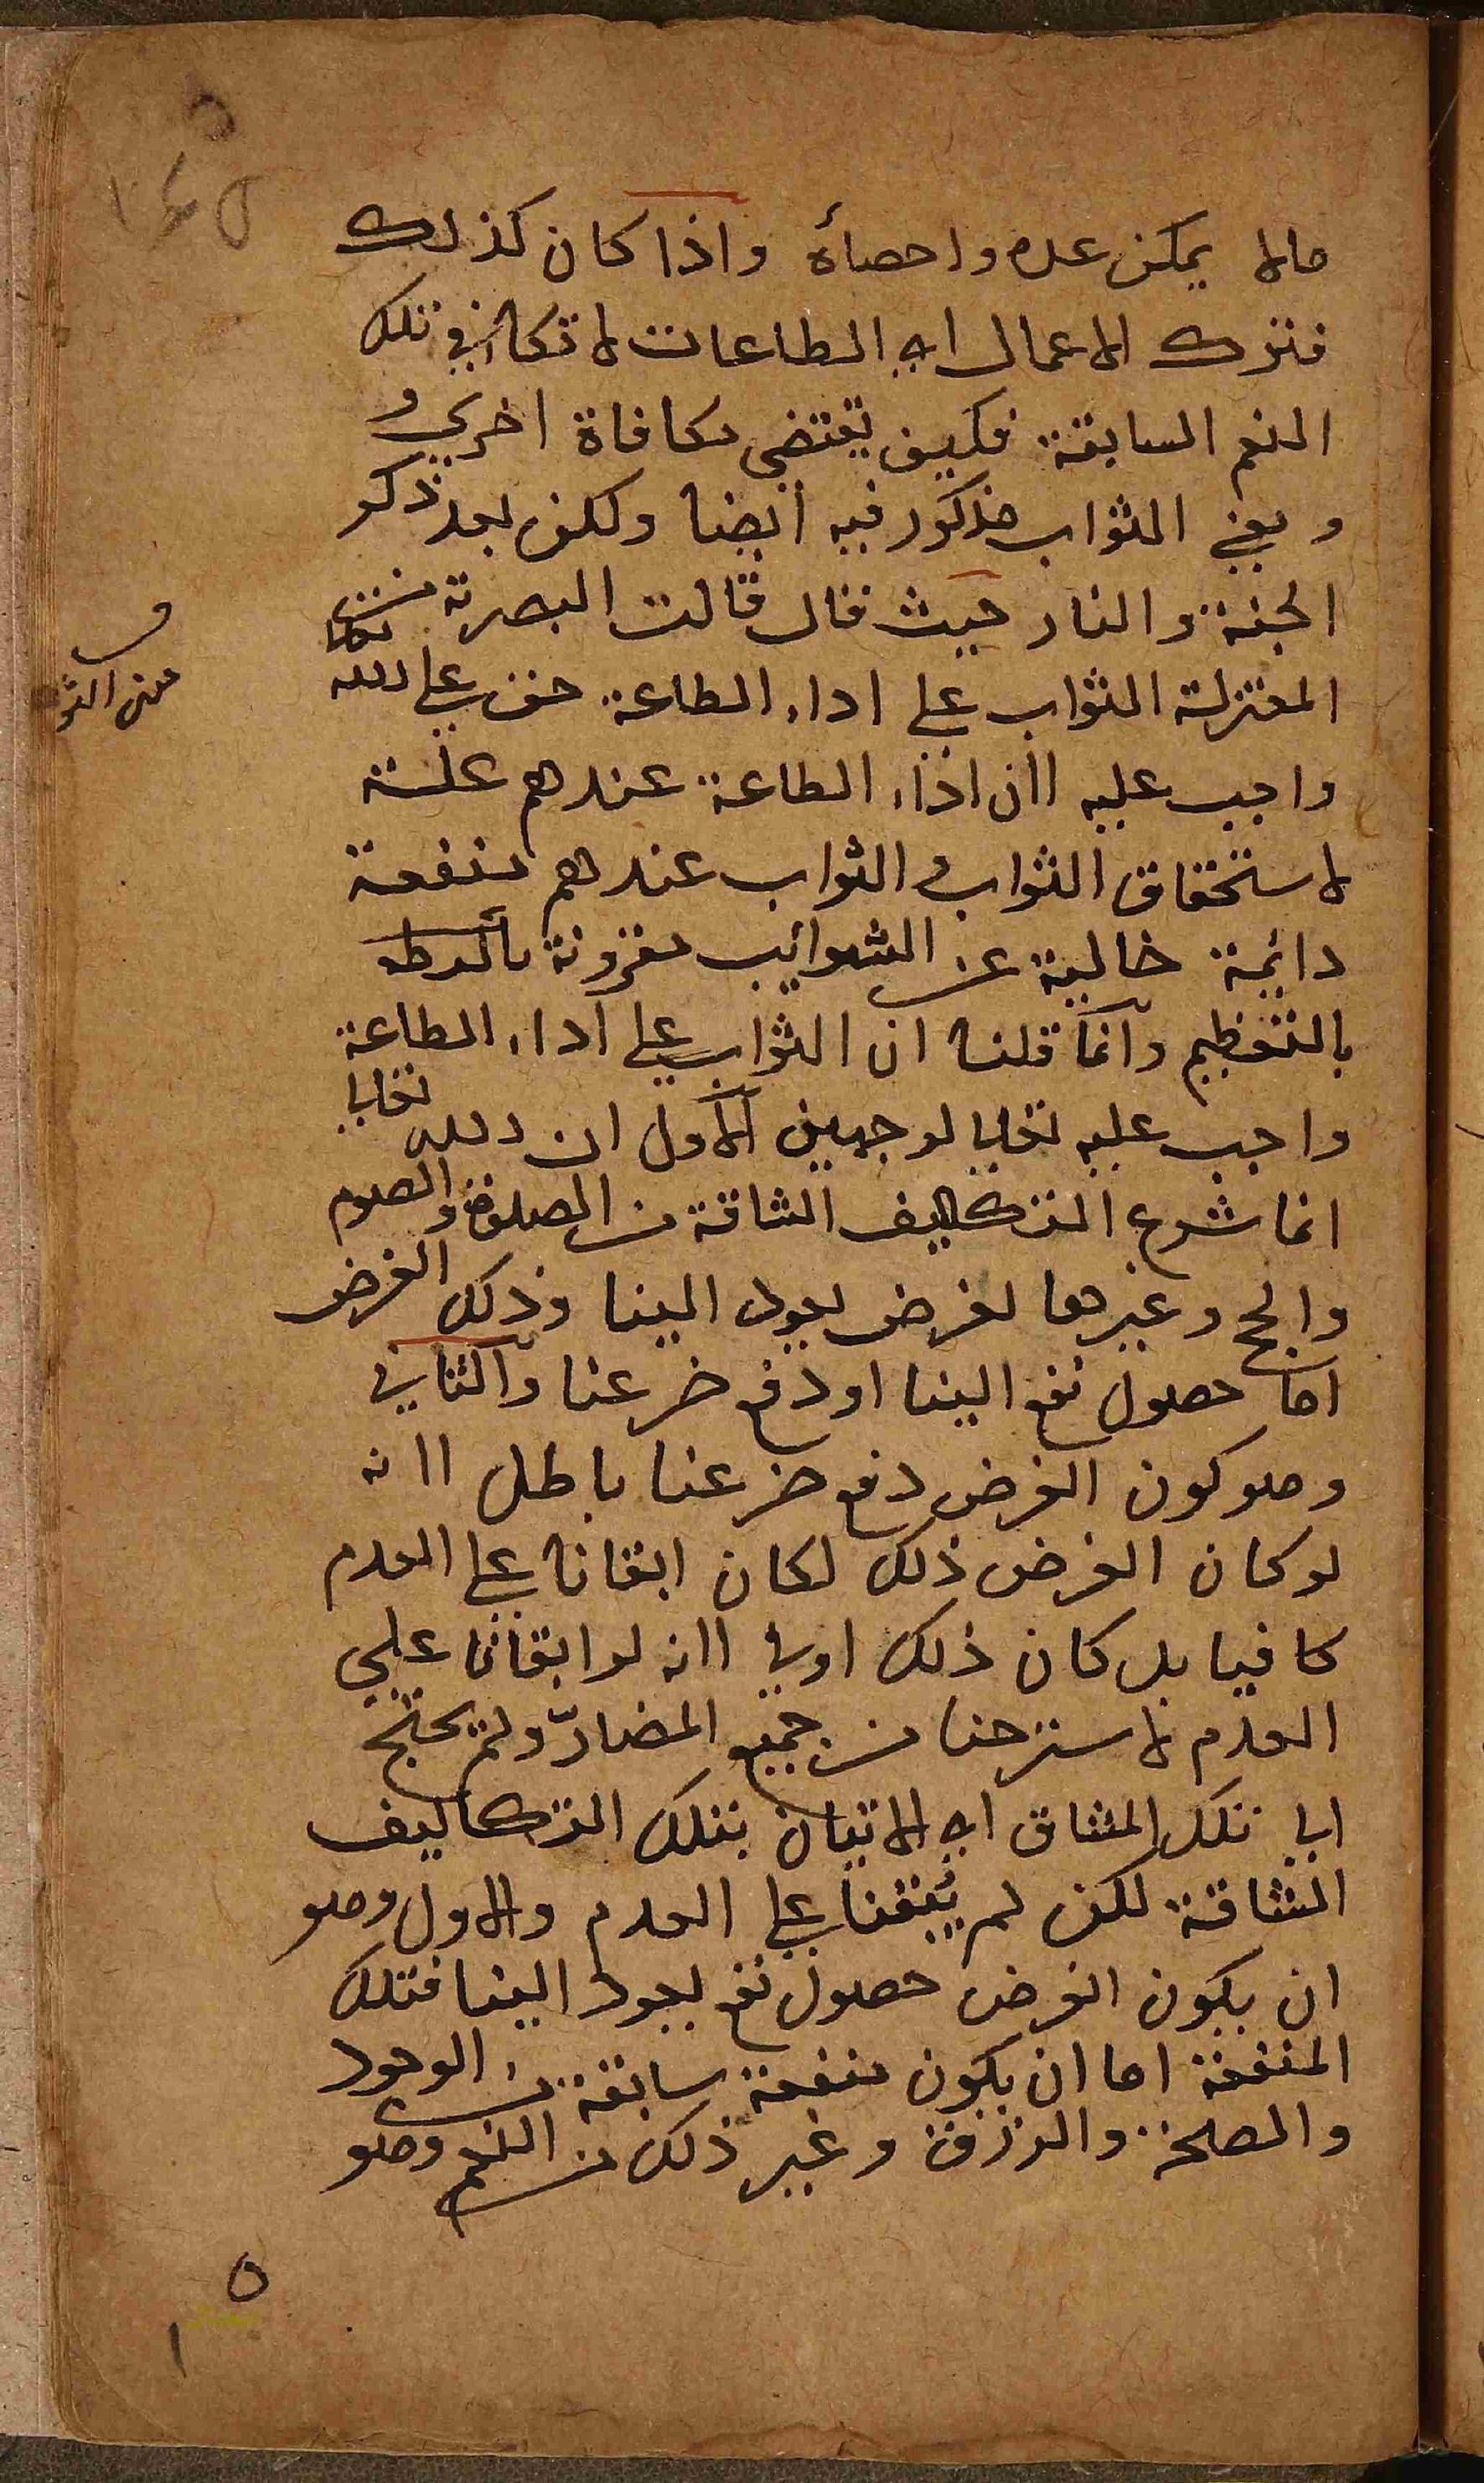 مالا يمكن عده واحصأه واذا كان كذلك
فتلك الاعمال اي الطاعات لا تكافي تلك
النعم السابقة فكيف يقتضي مكافاة اخري و
ومعني الثواب مذكور فيه ايضا ولكن بعد ذكر
الجنة والنار حيث قال قالت البصرية من
المعتزلة الثواب علي اداء الطاعة حق علي الله تعالى
واجب عليه لان اداء الطاعة عندهم علة
لاستحقاق الثواب و الثواب عندهم منفعة
دائمة خالية عن الشوايب مقرونة
بالتعظيم وانما قلنا ان الثواب علي اداء الطاعة
واجب عليه تعالي لوجهين الاول ان الله تعالي
انما شرع التكاليف الشاقة من الصلوة والصوم
والحج وغيرها لغرض يعود الينا وذلك الغرض
اما حصول نفع الينا او دفع ضر عنا والثاني
وهو كون الغرض دفع ضر عنا باطل لانه
لو كان الغرض ذلك لكان ابقانا علي العدم
كافيا بل كان ذلك اولي لانه لو ابقانا علي
العدم لاسترحنا من جميع المضارّ ولم نحتج
الي تلك المشاق اي الاتيان بتلك التكاليف
الشاقة لكن لم يُبقنا علي العدم والاول وهو
ان يكون الغرض حصول نفع يعود الينا فتلك
المنفعة اما ان يكون منفعة سابقة من الوجود
والصحة والرزق وغير ذلك من النعم وهو
٥
١